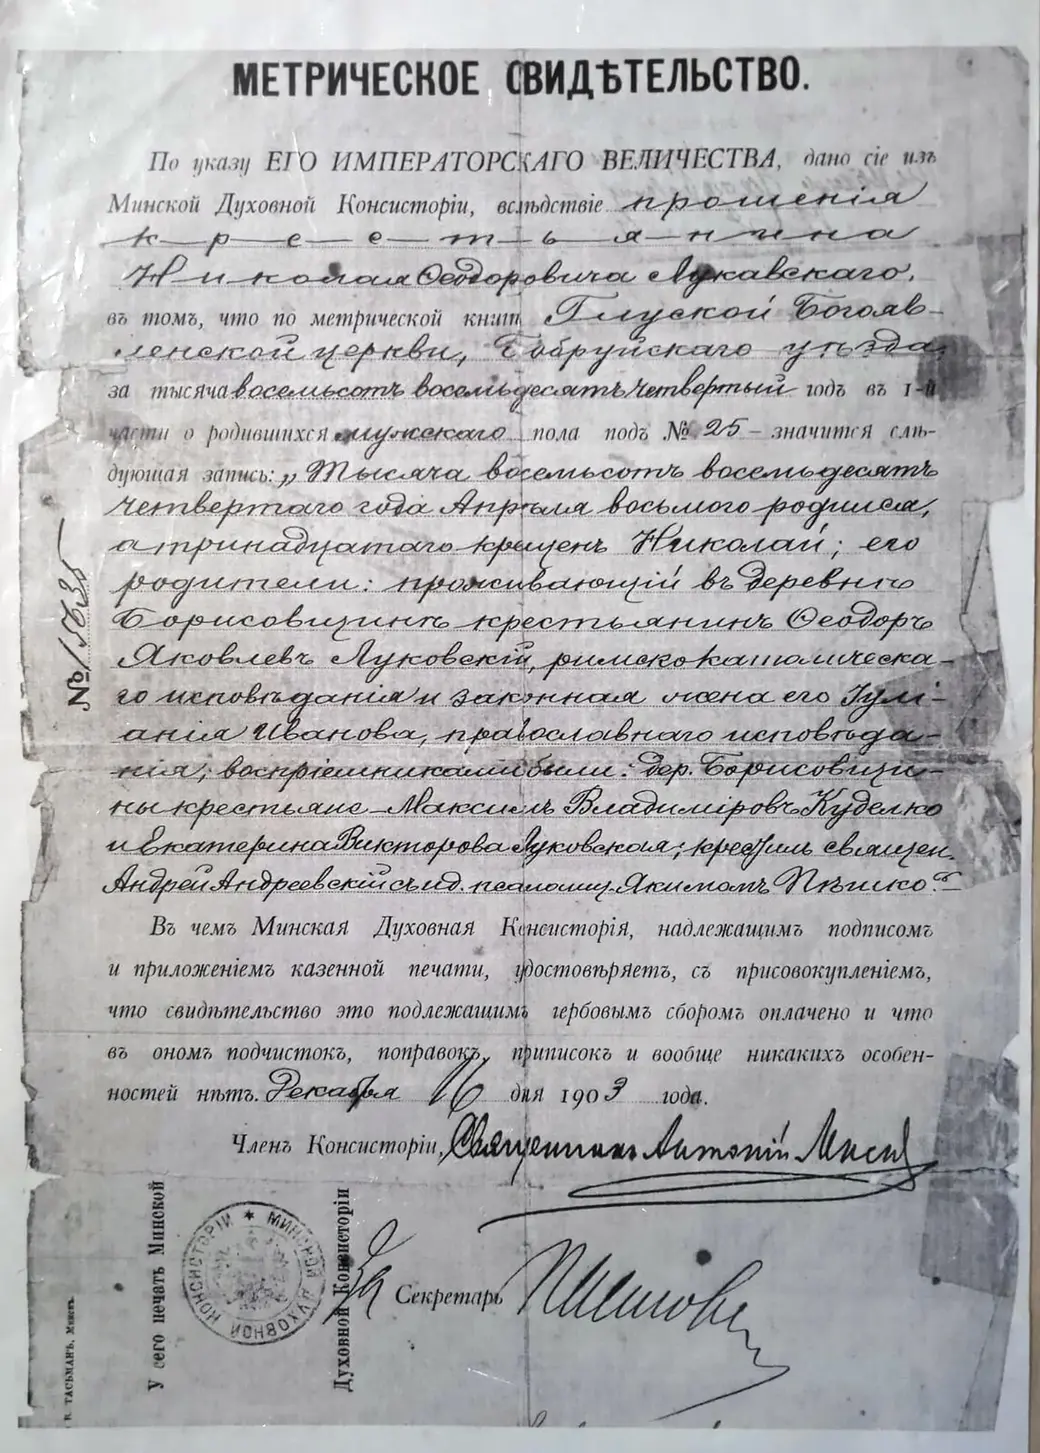 МЕТРИЧЕСКОЕ СВИДѢТЕЛЬСТВО.
По указу ЕГО ИМПЕРАТОРСКАГО ВЕЛИЧЕСТВА, дано сіе изъ
Минской Духовной Консисторіи, вслѣдствіе прошенія
к-р-е-с-т-ь-я-нина
Николая Ѳеодоровича Лукавскаго,
въ томъ, что по метрической книгѣ Глуской Богояв-
ленской церкви, Бобруйскаго уѣзда
за тысяча восемьсотъ восемьдесятъ четвертый годъ въ 1-й
части о родившихся мужскаго пола подъ № 25 - значится слѣ-
дующая запись: „Тысяча восемьсотъ восемьдесятъ
четвертаго года Апрѣля восьмого родился,
а тринадцатаго крещенъ Николай; его
родители: проживающій въ деревнѣ
Борисовщинѣ крестьянинъ Ѳеодоръ
Яковлевъ Луковскій, римскокатолическа-
го исповѣданія и законная жена его Іулі-
анія Иванова, православнаго исповѣда-
нія; воспріемниками были: дер. Борисовщи-
ны крестьяне Максимъ Владиміровъ Куделко
и Екатерина Викторова Луковская; крестилъ священ.
Андрей Андреевскій съ и.д. псаломщ. Якимомъ
Въ чемъ Минская Духовная Консисторія, надлежащимъ подписомъ
и приложеніемъ казенной печати, удостовѣряетъ, съ присовокупленіемъ,
что свидѣтельство это подлежащимъ гербовымъ сборомъ оплачено и что
въ ономъ подчистокъ, поправокъ, приписокъ и вообще никакихъ особен-
ностей нѣтъ. Декабря 16 дня 1903 года.
Членъ Консисторіи, Священникъ Антоній
За Секретарь
У сего печать Минской
Духовной Консисторіи
МИНСКОЙ ДУХОВНОЙ КОНСИСТОРІИ
№ 15635
ТАСЬМАНЪ, Минскъ.